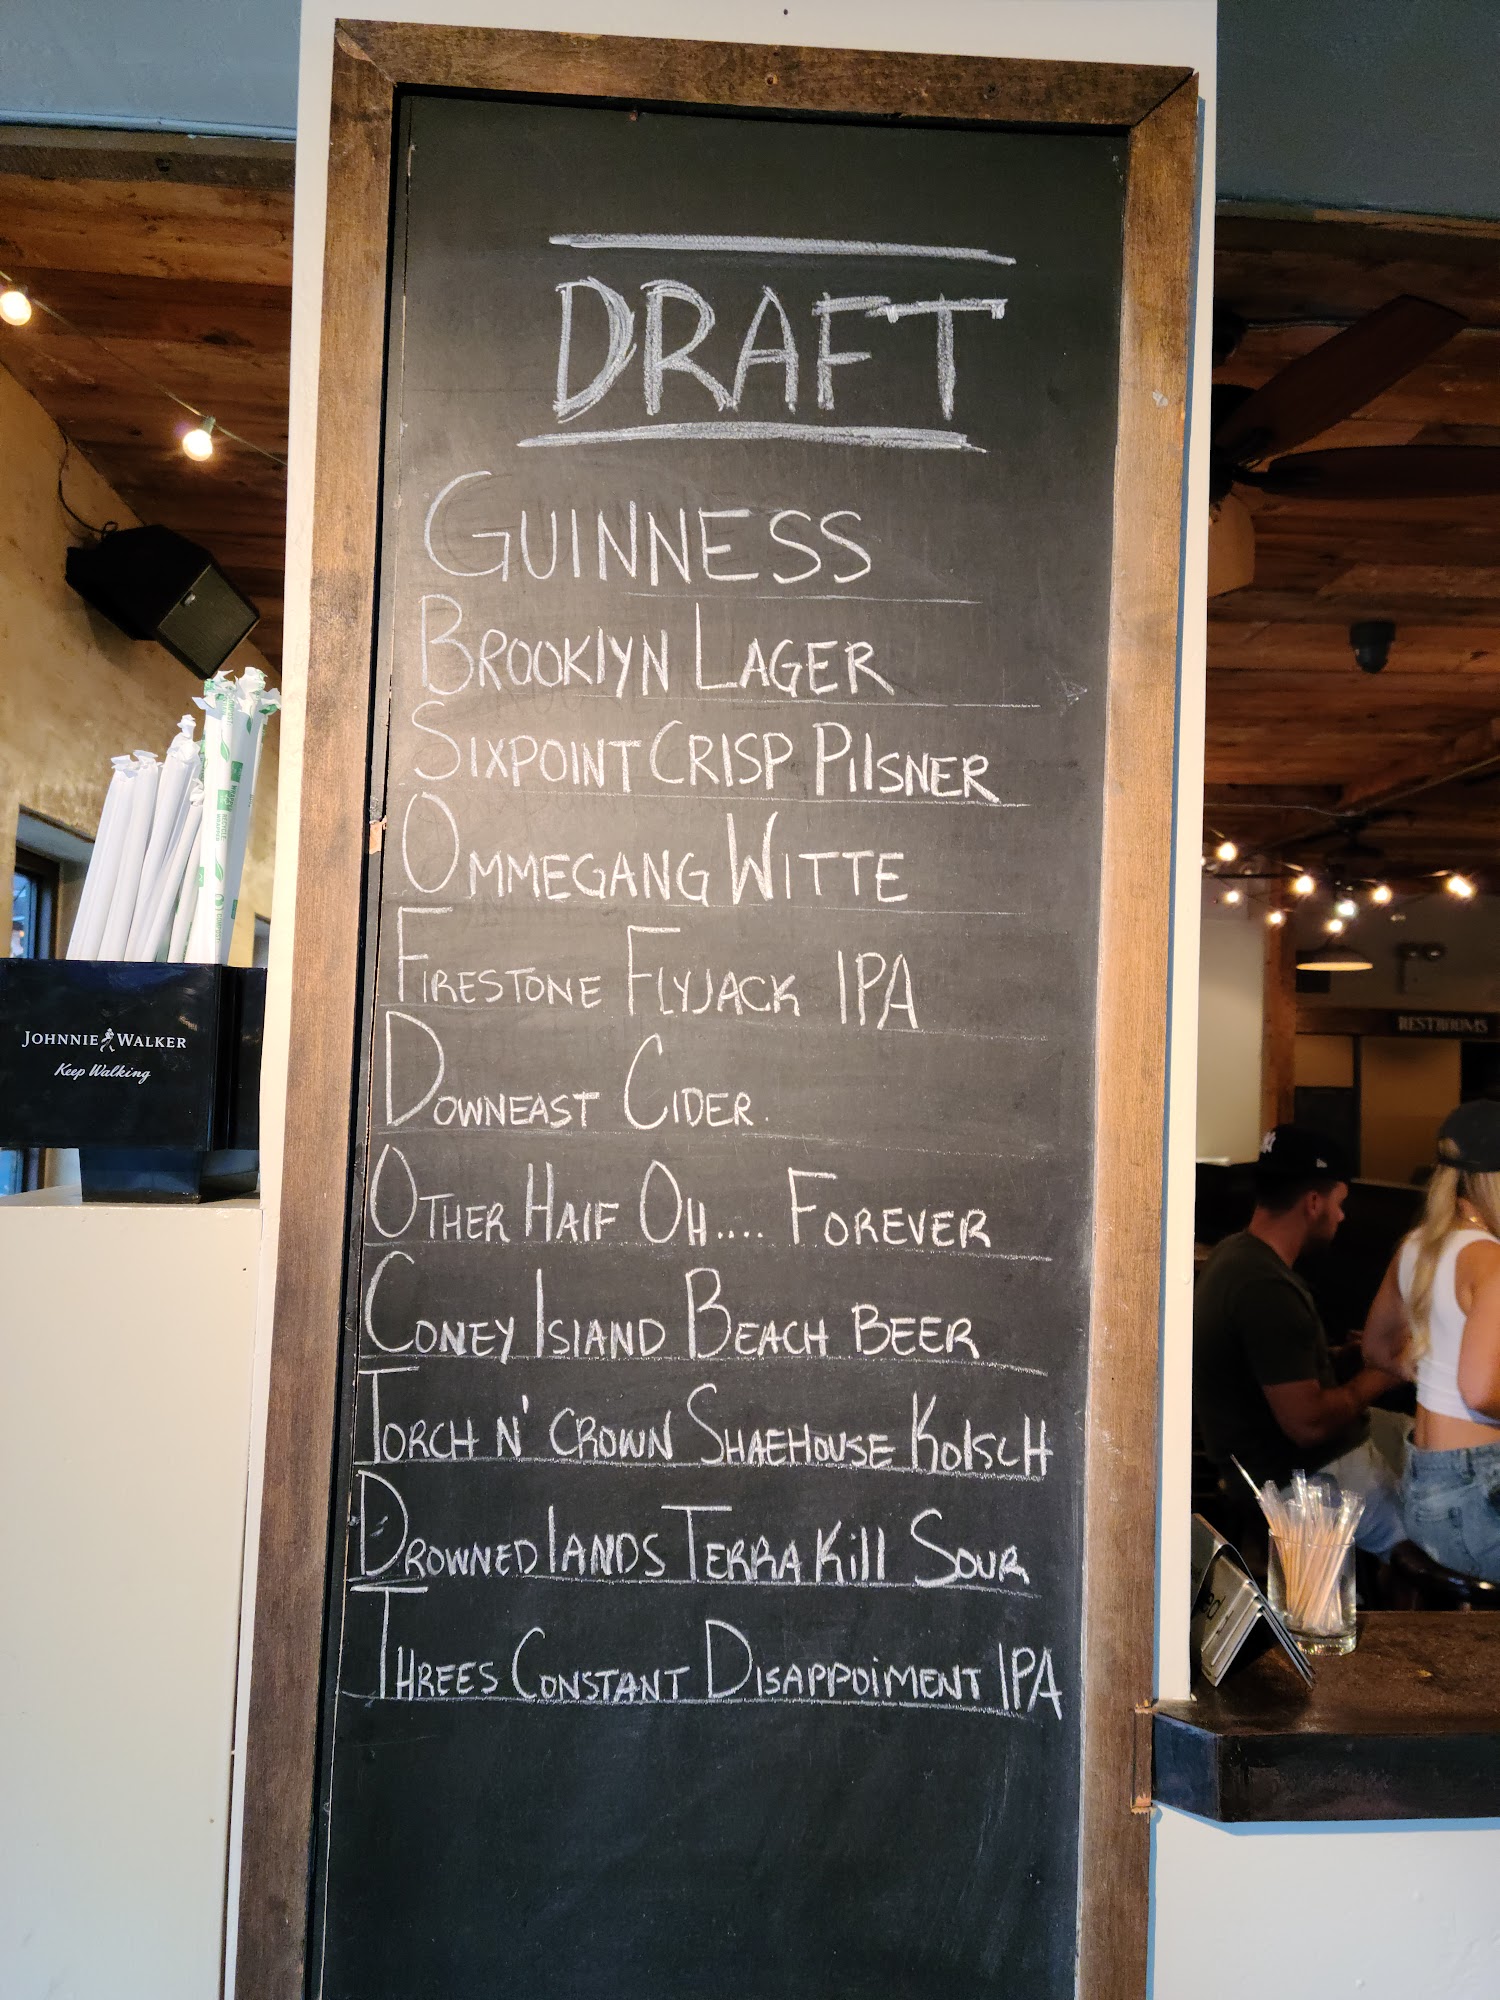 DRAFT
GUINNESS
BROOKLYN LAGER
SIXPOINT CRISP PILSNER
OMMEGANG WITTE
FIRESTONE FLYJACK IPA
DOWNEAST CIDER.
OTHER HALF OH.... FOREVER
CONEY ISLAND BEACH BEER
TORCH N' CROWN SHAEHOUSE KOLSCH
DROWNED LANDS TERRA KILL SOUR
THREES CONSTANT DISAPPOIMENT IPA
JOHNNIE WALKER
Keep Walking
RESTROOMS